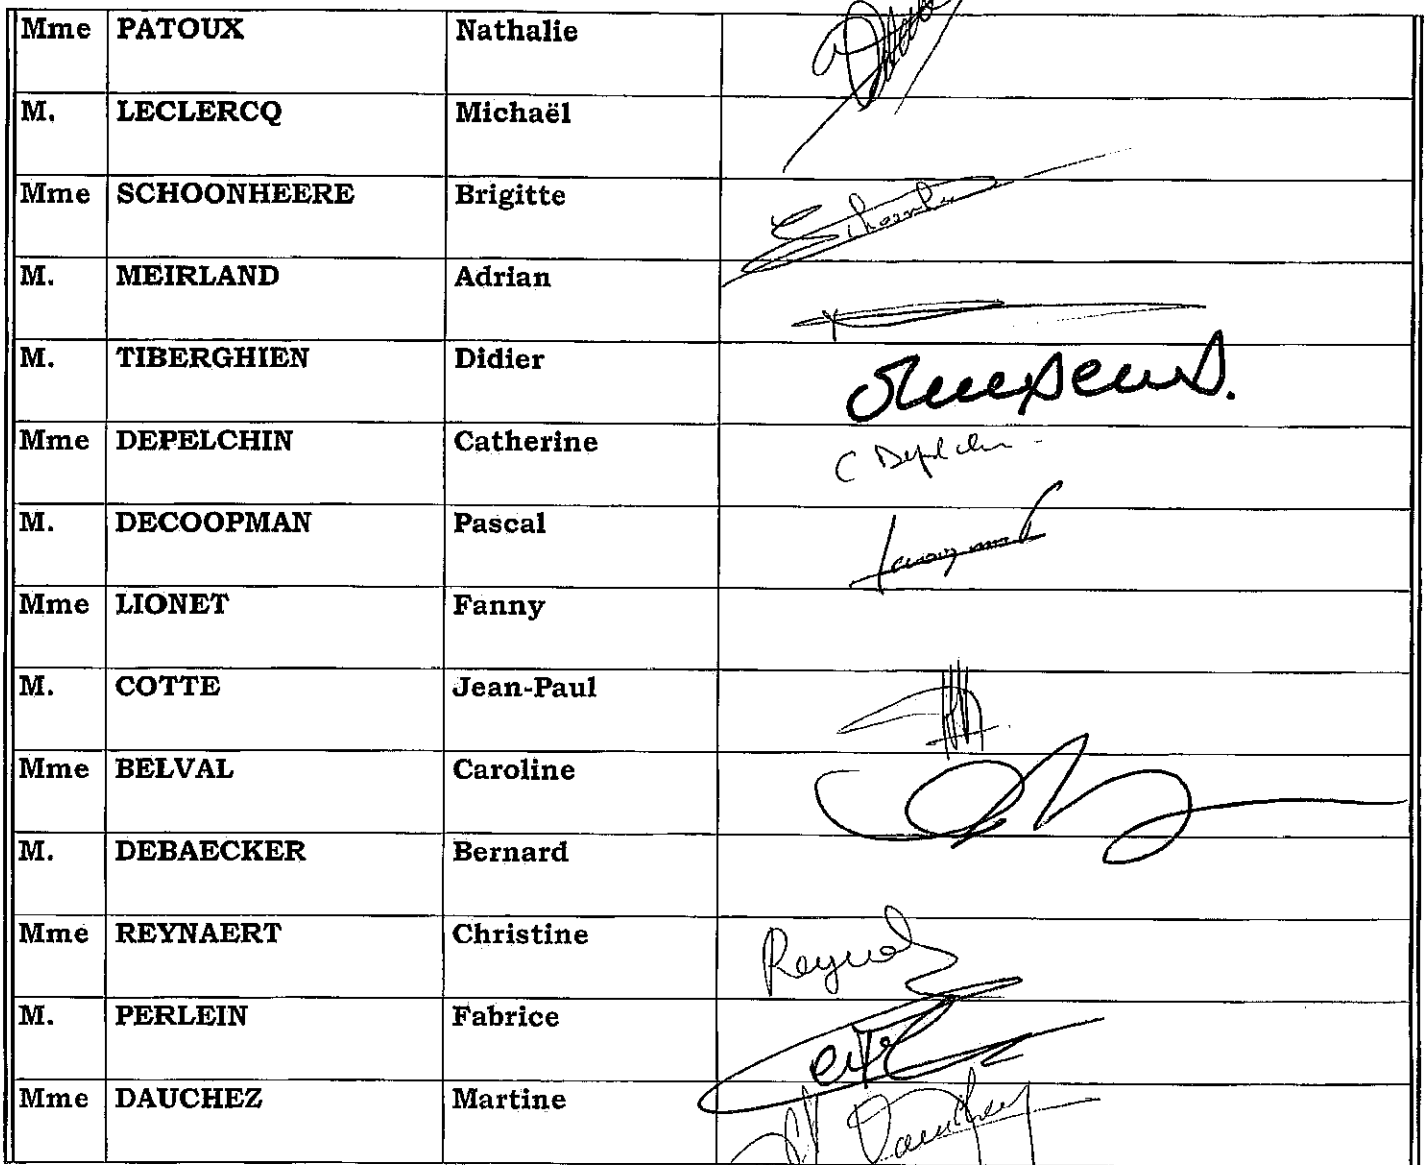 Mme PATOUX Nathalie
M. LECLERCQ Michaël
Mme SCHOONHEERE Brigitte
M. MEIRLAND Adrian
M. TIBERGHIEN Didier
Mme DEPELCHIN Catherine C Depelchin
M. DECOOPMAN Pascal
Mme LIONET Fanny
M. COTTE Jean-Paul
Mme BELVAL Caroline
M. DEBAECKER Bernard
Mme REYNAERT Christine
M. PERLEIN Fabrice
Mme DAUCHEZ Martine